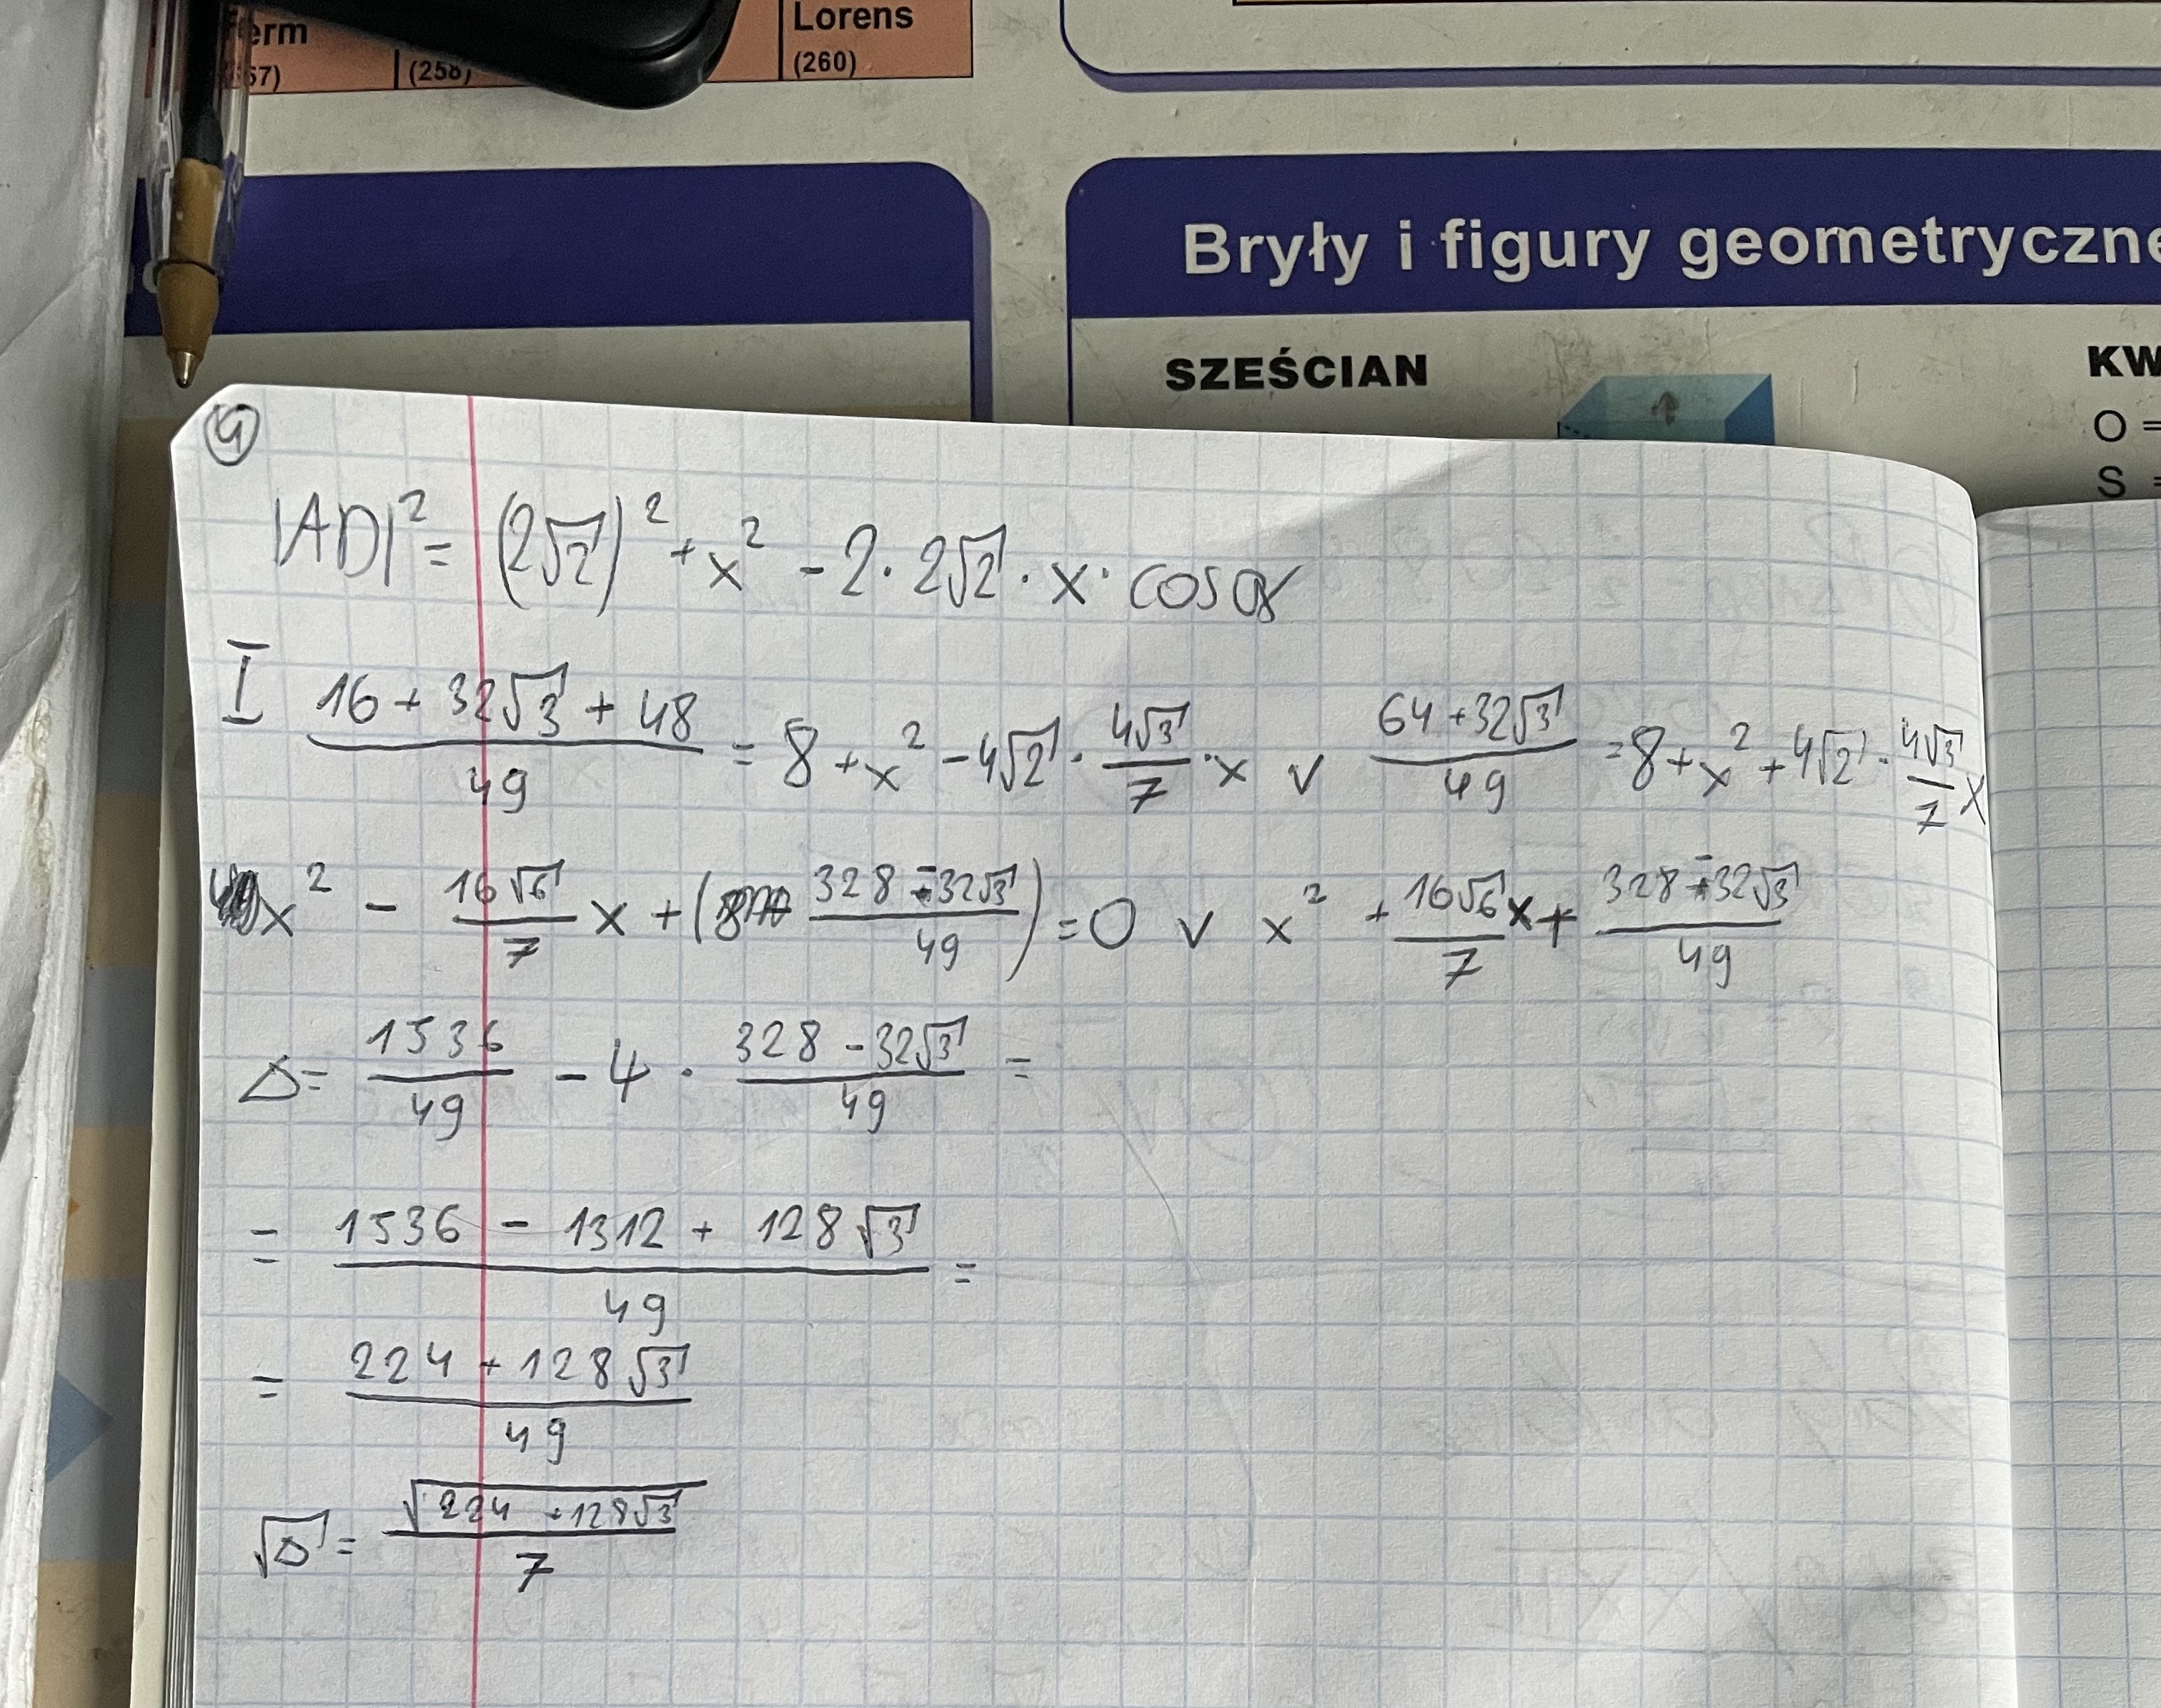 Lorens
(258)
(260)
Bryły i figury geometryczne
SZEŚCIAN
O =
S =
4
|AD|² = (2√2)² + x² - 2 · 2√2 · x · cos α
I (16 + 32√3 + 48)/49 = 8 + x² - 4√2 · 4√3/7 · x ∨ (64 + 32√3)/49 = 8 + x² + 4√2 · 4√3/7 x
x² - 16√6/7 x + ((328 - 32√3)/49) = 0 ∨ x² + 16√6/7 x + (328 - 32√3)/49
Δ = 1536/49 - 4 · (328 - 32√3)/49 =
= (1536 - 1312 + 128√3)/49 =
= (224 + 128√3)/49
√Δ = √(224 + 128√3)/7